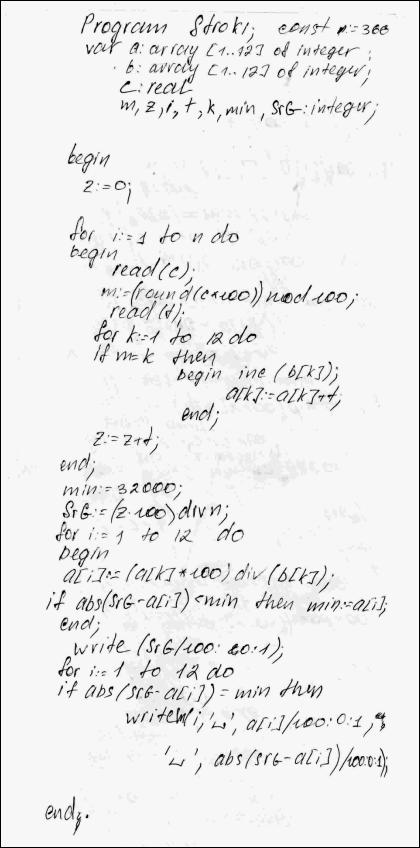 Program Stroki; const n:=366
var a: array [1..12] of integer;
b: array [1..12] of integer;
c: real
m, z, i, t, k, min, SrG: integer;
begin
z:=0;
for i:=1 to n do
begin
read(c);
m:=(round(c*100)) mod 100;
read(t);
for k:=1 to 12 do
if m=k then
begin inc (b[k]);
a[k]:=a[k]+t;
end;
z:=z+t;
end;
min:=32000;
SrG:=(z*100) div n;
for i:=1 to 12 do
begin
a[i]:=(a[k]*100) div (b[k]);
if abs(SrG-a[i])<min then min:=a[i];
end;
write (SrG/100: 20:1);
for i:=1 to 12 do
if abs(SrG-a[i])=min then
writeln(i,'␣', a[i]/100:0:1,
'␣', abs(SrG-a[i])/100:0:1);
end.